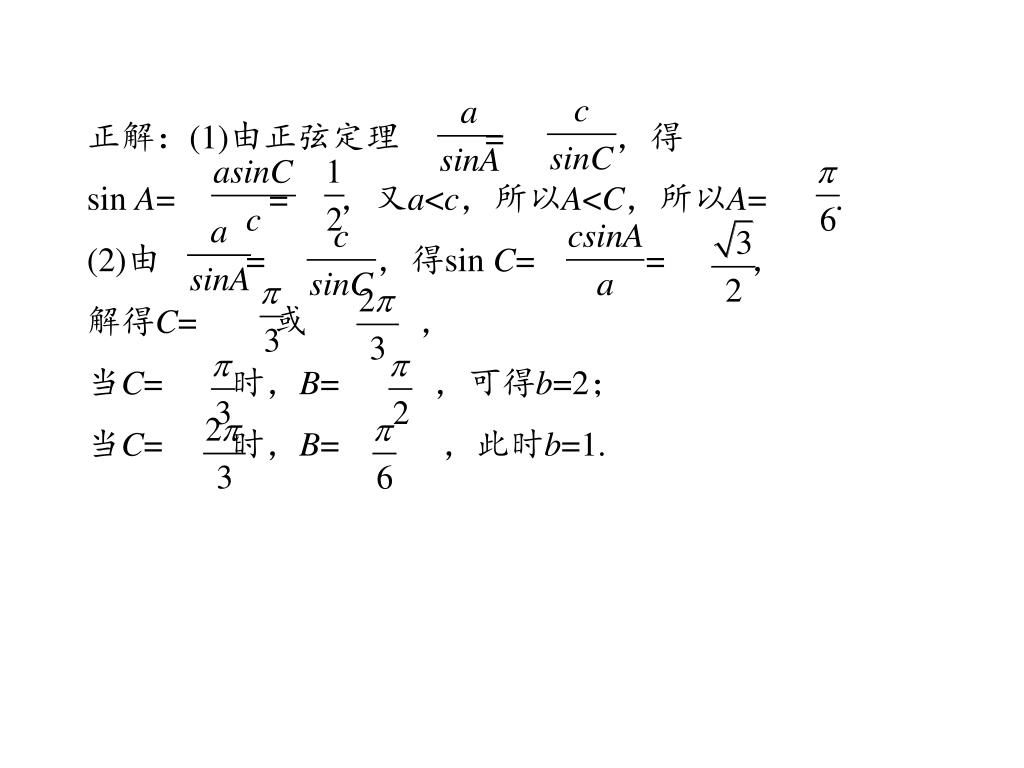 正解：(1)由正弦定理 a/sinA = c/sinC，得
sin A= asinC/c = 1/2，又a<c，所以A<C，所以A= π/6.
(2)由 a/sinA = c/sinC，得sin C= csinA/a = √3/2，
解得C= π/3 或 2π/3，
当C= π/3 时，B= π/2，可得b=2；
当C= 2π/3 时，B= π/6，此时b=1.